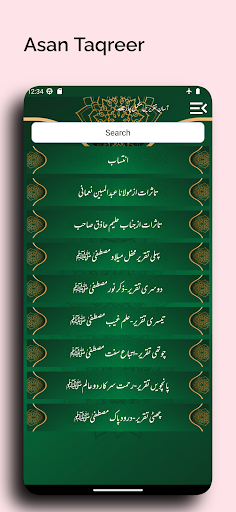 Asan Taqreer
12:34
Search
انتساب
تاثرات از مولانا عبدالمبین نعمانی
تاثرات از جناب حلیم حاذق صاحب
پہلی تقریر محفل میلاد مصطفیٰ ﷺ
دوسری تقریر-ذکر نور مصطفیٰ ﷺ
تیسری تقریر-علم غیب مصطفیٰ ﷺ
چوتھی تقریر-اتباع سنت مصطفیٰ ﷺ
پانچویں تقریر-رحمت سرکار دو عالم ﷺ
چھٹی تقریر-درود پاک مصطفیٰ ﷺ